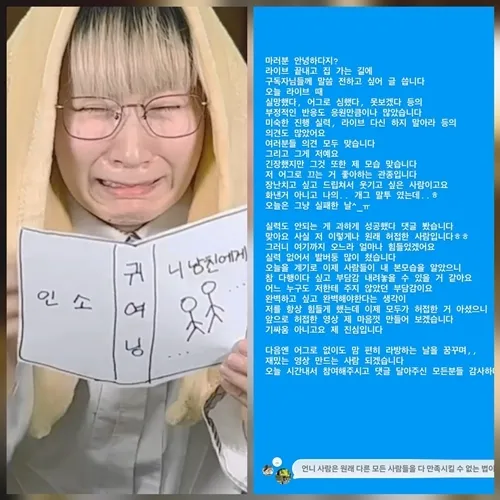 인소
귀
여
닝
니 남친에게
...
...
마러분 안녕하다지?
라이브 끝내고 집 가는 길에
구독자님들께 말씀 전하고 싶어 글 씁니다
오늘 라이브 때
실망했다, 어그로 심했다, 못보겠다 등의
부정적인 반응도 응원만큼이나 많았습니다
미숙한 진행 실력, 라이브 다신 하지 말아라 등의
의견도 많았어요
여러분들 의견 모두 맞습니다
그리고 그게 저예요
긴장했지만 그것 또한 제 모습 맞습니다
저 어그로 끄는 거 좋아하는 관종입니다
장난치고 싶고 드립쳐서 웃기고 싶은 사람이고요
화낸거 아니고 나의.. 개그 말투 있는데..ㅎ
오늘은 그냥 실패한 날^_ㅠ
실력도 안되는 게 과하게 성공했다 댓글 봤습니다
맞아요 사실 저 이렇게나 원래 허접한 사람입니다ㅎㅎ
그러니 여기까지 오느라 얼마나 힘들었겠어요
실력 없어서 발버둥 많이 쳤습니다
오늘을 계기로 이제 사람들이 내 본모습을 알았으니
참 다행이다 싶고 부담감 내려놓을 수 있을 거 같아요
어느 누구도 저한테 주지 않았던 부담감이요
완벽하고 싶고 완벽해야한다는 생각이
저를 항상 힘들게 했는데 이제 모두가 허접한 거 아셨으니
앞으로 허접한 영상 제 마음껏 만들어 보겠습니다
기싸움 아니고요 제 진심입니다
다음엔 어그로 없이도 맘 편히 라방하는 날을 꿈꾸며,,
재밌는 영상 만드는 사람 되겠습니다
오늘 시간내서 참여해주시고 댓글 달아주신 모든분들 감사하
언니 사람은 원래 다른 모든 사람들을 다 만족시킬 수 없는 법이